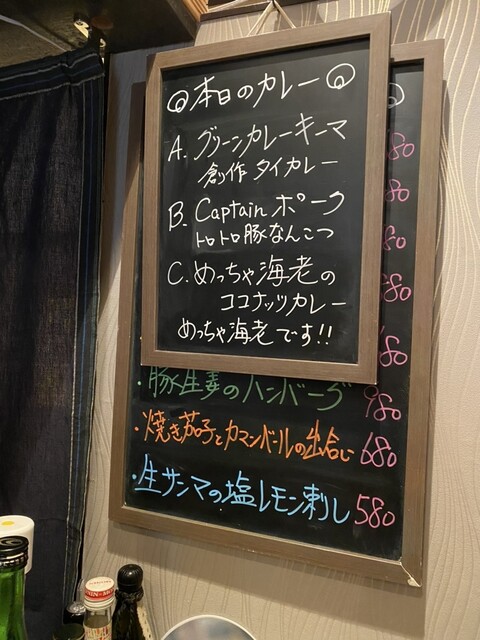 本日のカレー
A. グリーンカレーキーマ
創作タイカレー
B. Captainポーク
トロトロ豚なんこつ
C. めっちゃ海老の
ココナッツカレー
めっちゃ海老です!!
80
80
80
80
80
・豚生姜のハンバーグ 980
・焼き茄子とカマンベールの出合い 680
・生サンマの塩レモン刺し 580